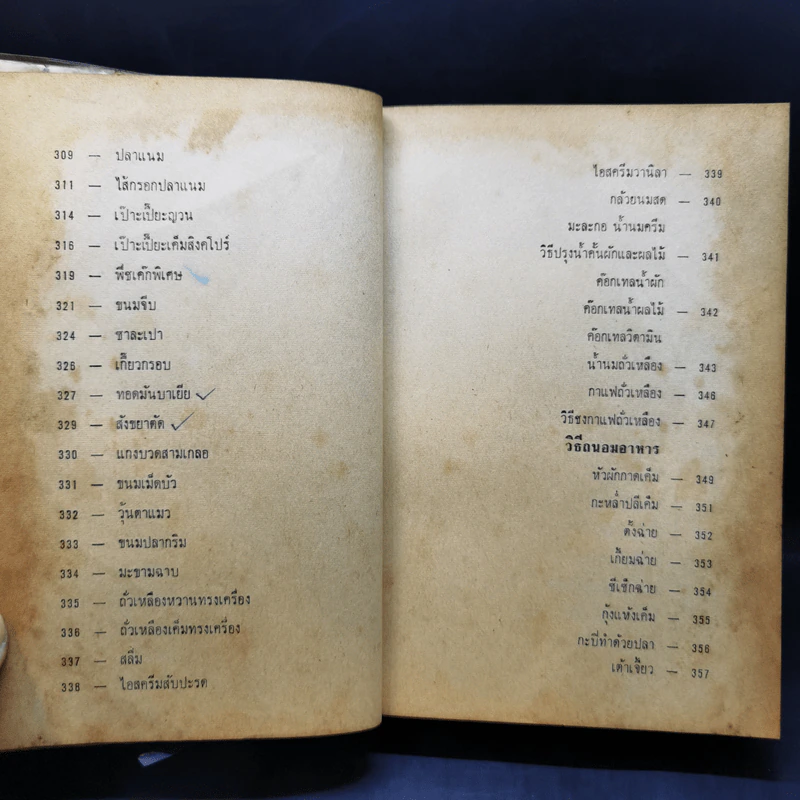 309 — ปลาแนม
311 — ไส้กรอกปลาแนม
314 — เป๊าะเปี๊ยะญวน
316 — เป๊าะเปี๊ยะเค็มสิงคโปร์
319 — พีชเค๊กพิเศษ
321 — ขนมจีบ
324 — ซาละเปา
326 — เกี๊ยวกรอบ
327 — ทอดมันบาเยีย
329 — สังขยาตัด
330 — แกงบวดสามเกลอ
331 — ขนมเม็ดบัว
332 — วุ้นตาแมว
333 — ขนมปลากริม
334 — มะขามฉาบ
335 — ถั่วเหลืองหวานทรงเครื่อง
336 — ถั่วเหลืองเค็มทรงเครื่อง
337 — สลิ่ม
338 — ไอสครีมสับปะรด
ไอสครีมวานิลา — 339
กล้วยนมสด — 340
มะละกอ น้ำนมครีม
วิธีปรุงน้ำคั้นผักและผลไม้ — 341
ค๊อกเทลน้ำผัก
ค๊อกเทลน้ำผลไม้ — 342
ค๊อกเทลวิตามิน
น้ำนมถั่วเหลือง — 343
กาแฟถั่วเหลือง — 346
วิธีชงกาแฟถั่วเหลือง — 347
วิธีถนอมอาหาร
หัวผักกาดเค็ม — 349
กะหล่ำปลีเค็ม — 351
ตั้งฉ่าย — 352
เกี้ยมฉ่าย — 353
ซีเซ็กฉ่าย — 354
กุ้งแห้งเค็ม — 355
กะปิทำด้วยปลา — 356
เต้าเจี้ยว — 357